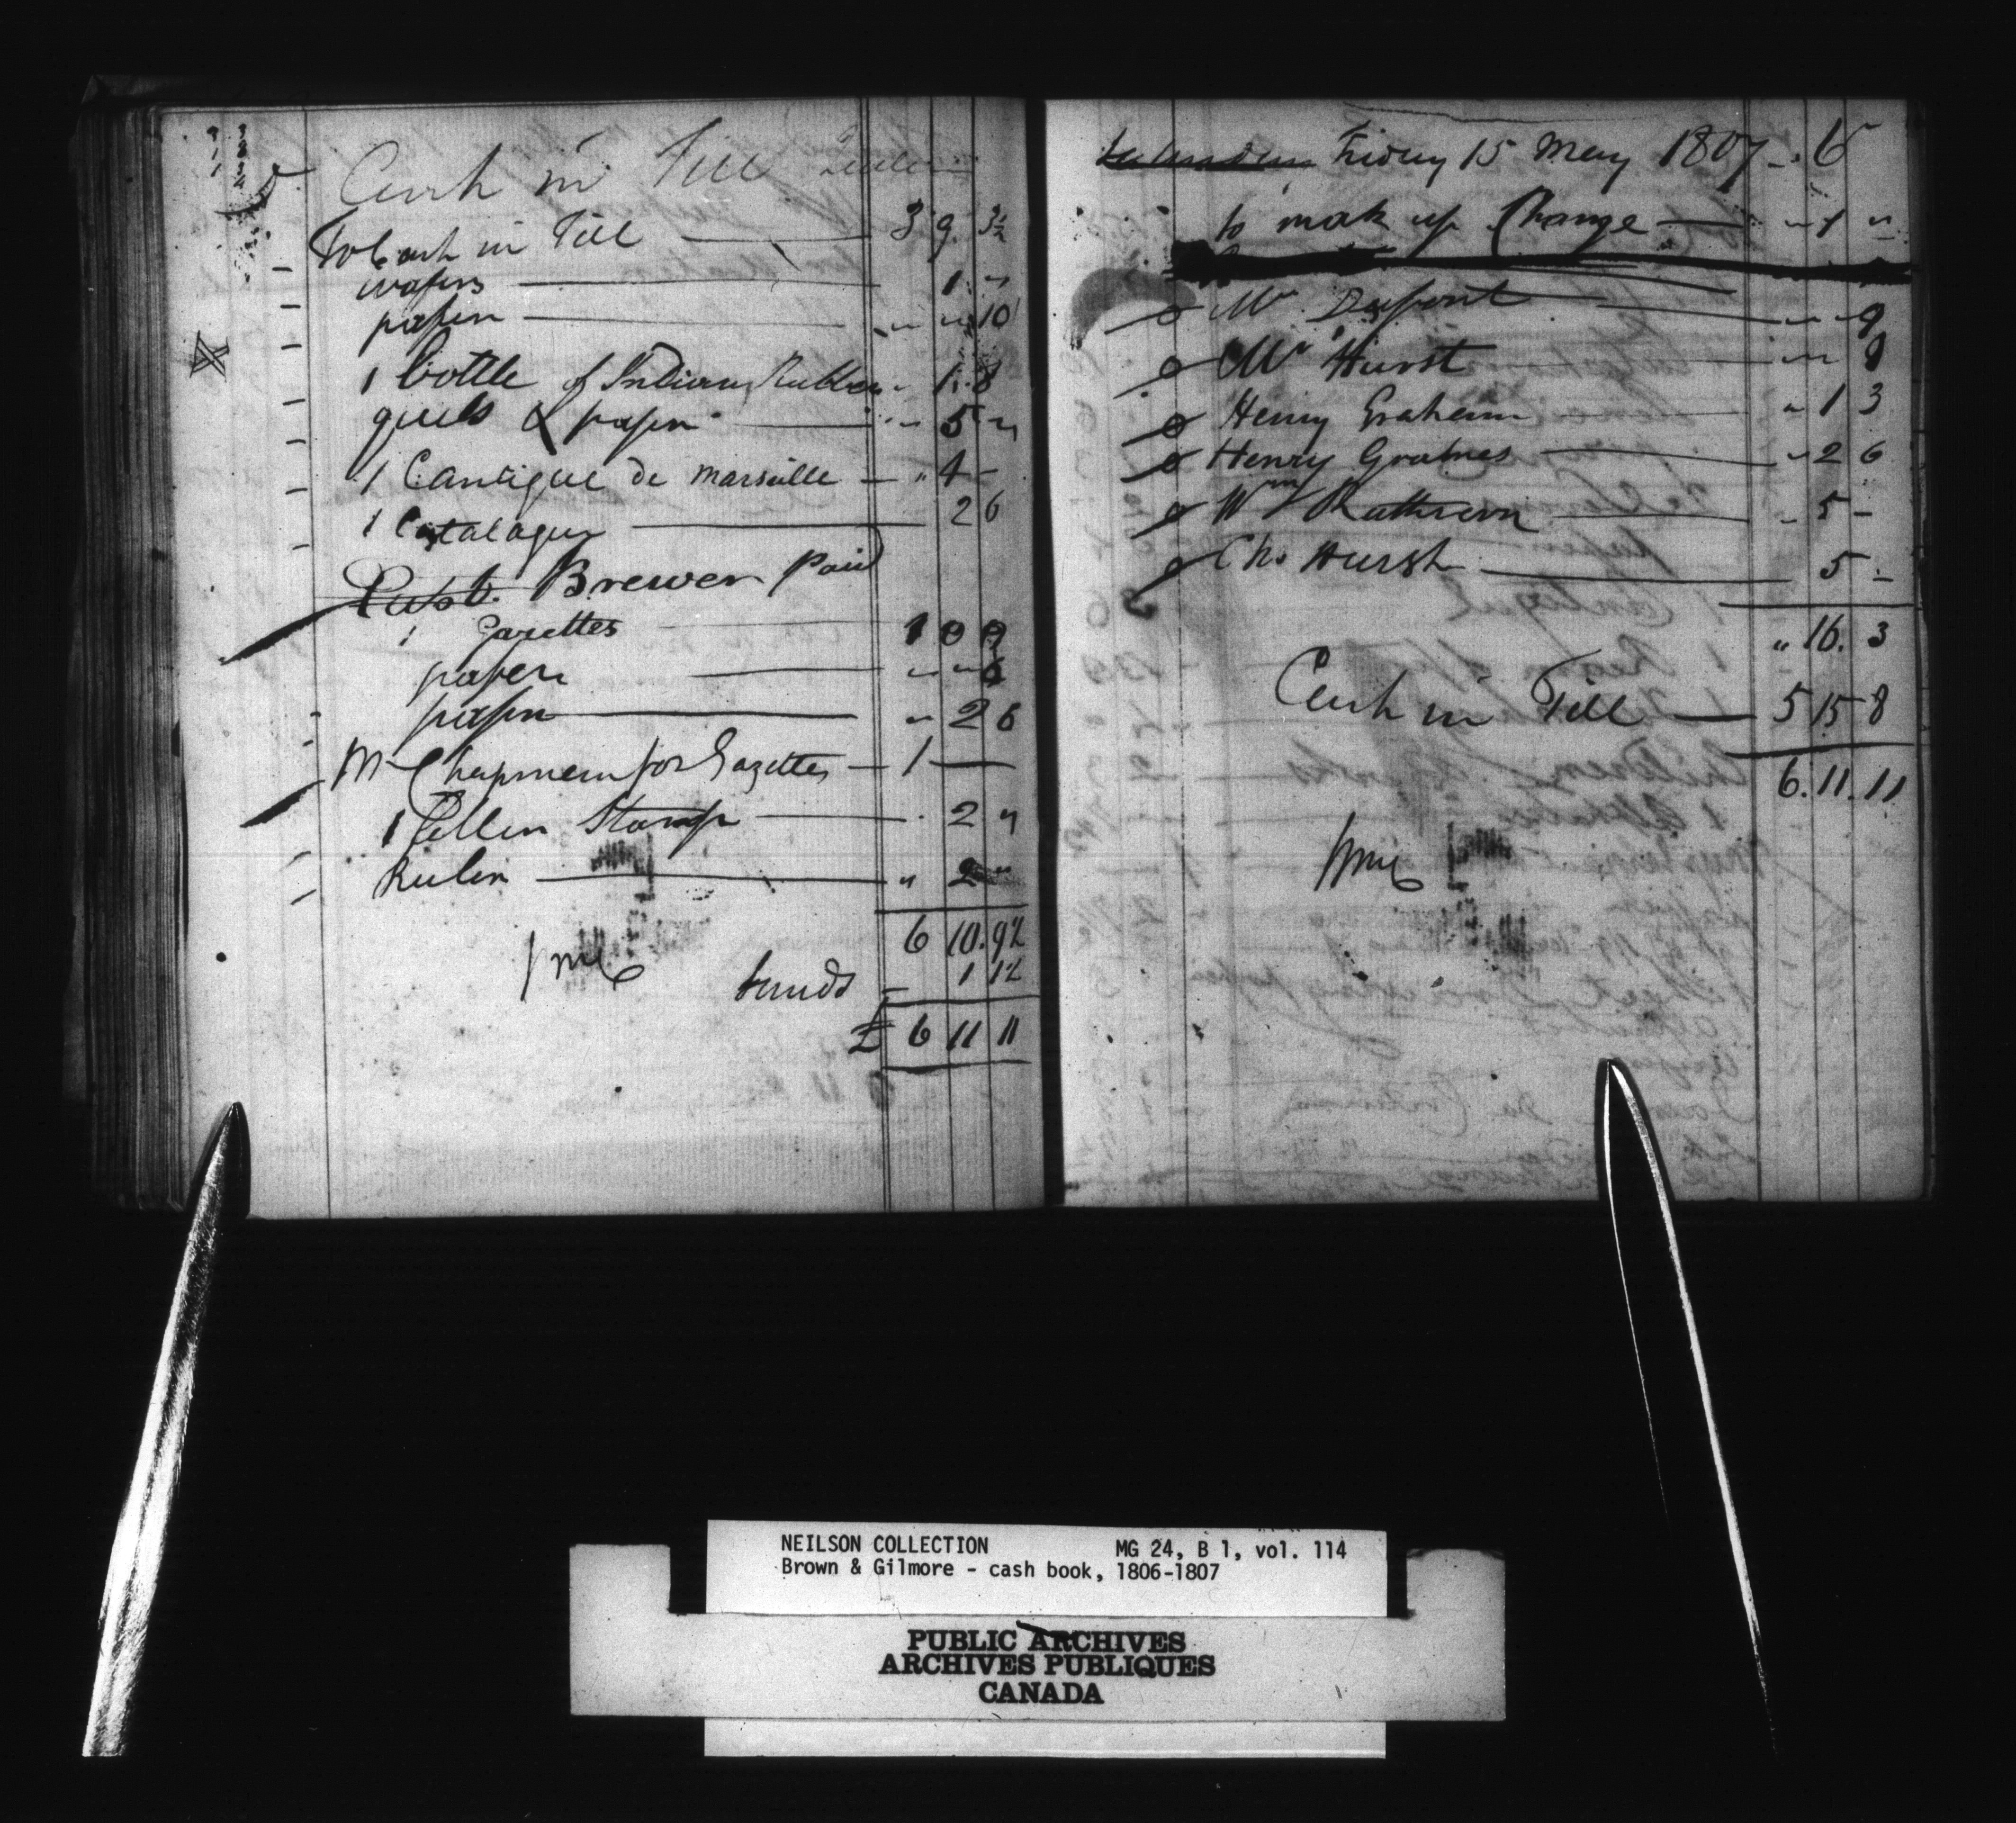 Cash in Till
To Cash in Till 3 9 3½
wafers 1 "
paper " " 10
1 bottle of Indian Rubber " 1 8
quils & paper " 5 "
1 Cantique de Marseille " 4 -
1 Catalogue 2 6
Capt. Brewer paid
1 Gazettes 1 0 0
paper " " 6
paper " 2 6
Mr Chapman for Gazettes 1
1 Stamp 2 "
Ruler " 2 "
6 10. 9½
1 1½
£ 6 11 11
Friday 15 May 1807 6
to mak up Change " 1 "
Mr Dupont " " 9
Mr Hurst " " 9
Henry Graham " 1 3
Henry Grahmes " 2 6
Wm Rathrevn " 5 -
Chs Hursh 5 -
" 16. 3
Cash in Till 5 15 8
6. 11. 11
NEILSON COLLECTION MG 24, B 1, vol. 114
Brown & Gilmore - cash book, 1806-1807
PUBLIC ARCHIVES
ARCHIVES PUBLIQUES
CANADA